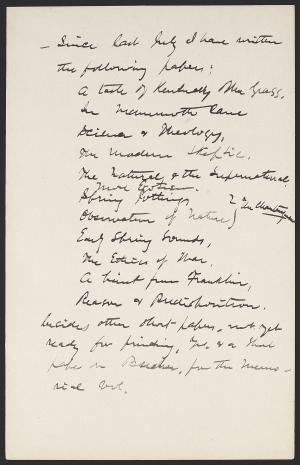 — Since last July I have written
the following papers:
A taste of Kentucky Blue Grass,
In Mammoth Cave
Science & Theology,
The Modern Skeptic.
The Natural & the Supernatural.
Spring Jottings
Observation of Nature}
Early Spring Sounds,
The Ethics of War,
A hint from Franklin,
Reason & Predisposition.
besides other short papers, not yet
ready for printing, &c. & a short
paper on Beecher, for the Memo-
rial Vol.